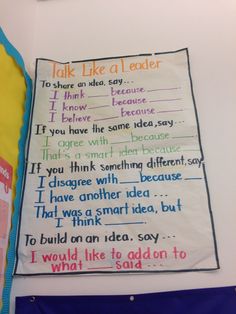 Talk Like a Leader
To share an idea, say...
I think ____ because ____.
I know ____ because ____.
I believe ____ because ____.
If you have the same idea, say...
I agree with ____ because ____.
That's a smart idea because ____.
If you think something different, say
I disagree with ____ because ____
I have another idea...
That was a smart idea, but
I think ____.
To build on an idea, say...
I would like to add on to
what ____ said...